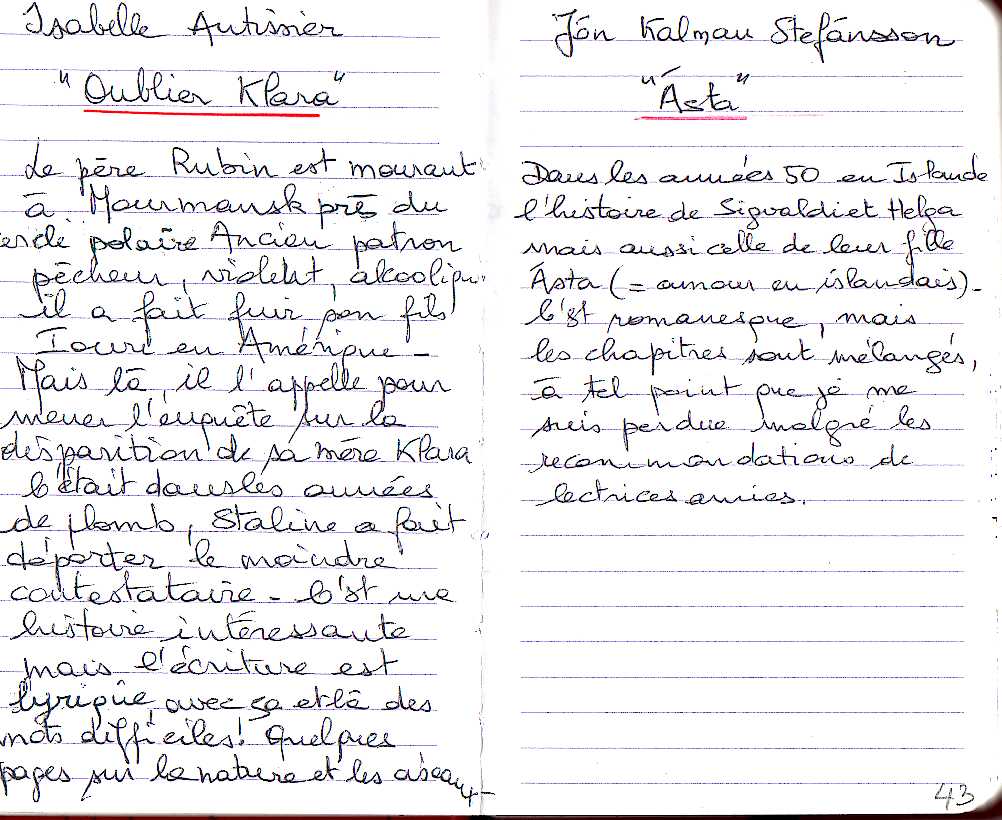 Isabelle Autissier
"Oublier Klara"
Le père Rubin est mourant
à Mourmansk près du
cercle polaire Ancien patron
pêcheur, violent, alcoolique
il a fait fuir son fils
Iouri en Amérique -
Mais là, il l'appelle pour
mener l'enquête sur la
disparition de sa mère Klara
C'était dans les années
de plomb, Staline a fait
déporter le moindre
contestataire - C'st une
histoire intéressante
mais l'écriture est
lyrique, avec ça et là des
mots difficiles! Quelques
pages sur la nature et les oiseaux -
Jón Kalman Stefánsson
"Ásta"
Dans les années 50 en Islande
l'histoire de Sigvaldi et Helga
mais aussi celle de leur fille
Ásta (= amour en islandais) -
C'st romanesque, mais
les chapitres sont mélangés,
à tel point que je me
suis perdue malgré les
recommandations de
lectrices amies.
43